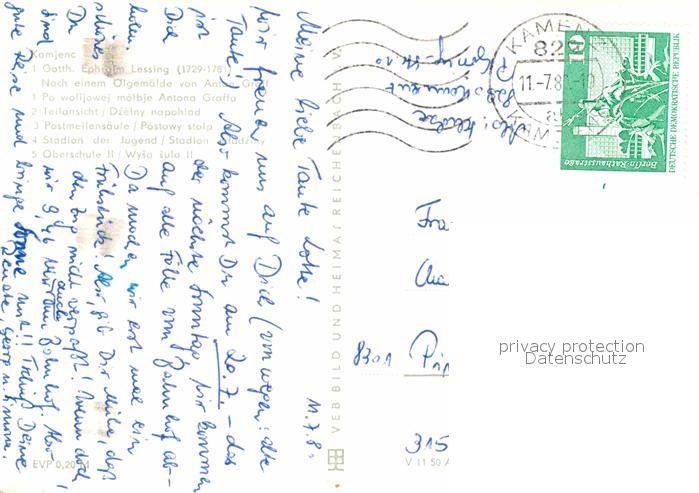 Meine liebe Tante Lotte!
11.7.80
wir freuen uns auf Dich (von wegen: alte
Tante!) Also kommst Du am 20.7. – das
ist der nächste Sonntag. Wir kommen
Dich auf alle Fälle vom Bahnhof ab-
holen. Da machen wir erst mal ein
schönes Frühstück! Also, gib Dir Mühe, daß
Du den Zug nicht verpaßt! Wenn doch,
sind wir auch am Bahnhof. Also
gute Reise und bringe Sonne mit!! Tschüß Deine
Renate, Georg u. Simona.
Kamjenc
1 Gotth. Ephraim Lessing (1729-178
Nach einem Ölgemälde von Anton Gra
1 Po wolijowej mólbje Antona Graffa
2 Teilansicht / Dźělny napohlad
3 Postmeilensäule / Póstowy stołp
4 Stadion der Jugend / Stadion
5 Oberschule II / Wyša šula II
EVP 0,20 M
VEB BILD UND HEIMAT REICHENBACH V
V 11 50 A
KAMENZ
829
11.-7.80-19
KAMJENC
10
Berlin-Rathausstraße
DEUTSCHE DEMOKRATISCHE REPUBLIK
Abs.:
829 Kamenz
Fra
Cha
8301 Pir
315
privacy protection
Datenschutz